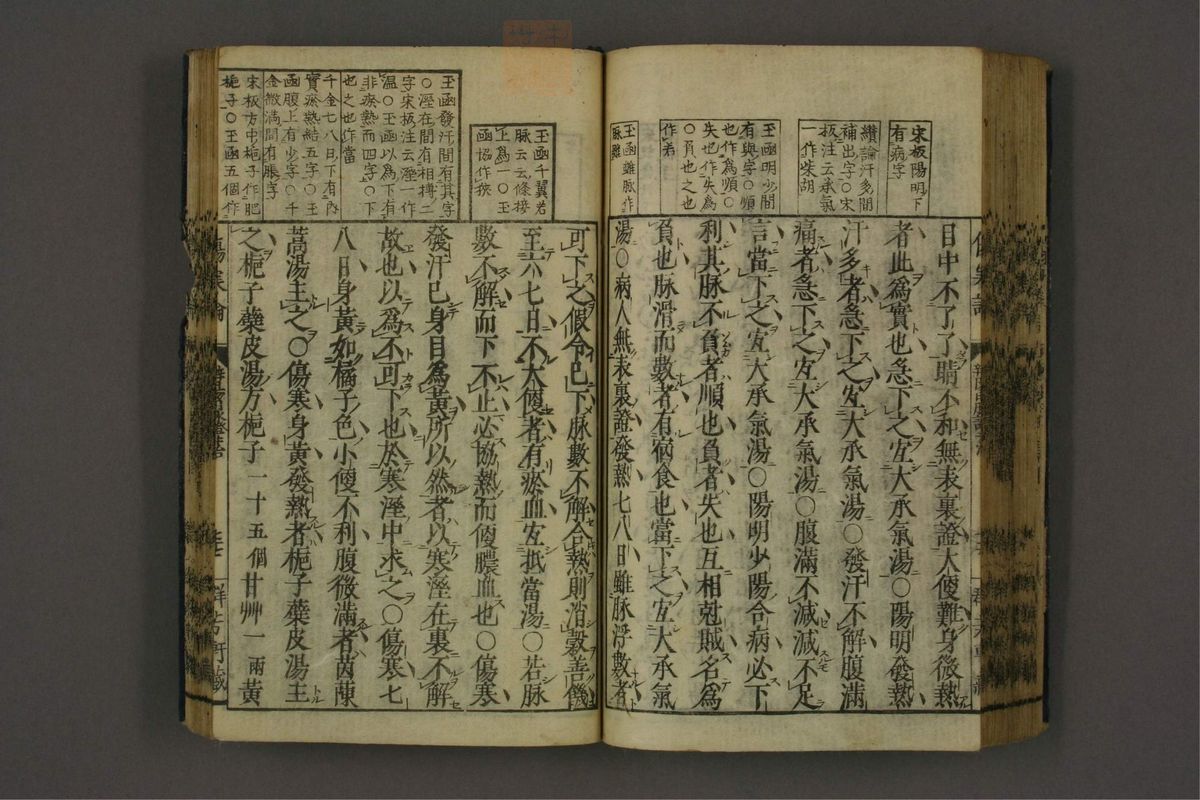 宋板陽明下
有病字
纘論汗多間
補出字○宋
板注云承氣
一作柴胡
玉函明少間
有與字○順
也作爲順○
失也作失爲
○負也之也
作弟
玉函雖脉作
脉雖
目中不了了睛不和無表裏證大便難身微熱
者此爲實也急下之宜大承氣湯○陽明發熱
汗多者急下之宜大承氣湯○發汗不解腹滿
痛者急下之宜大承氣湯○腹滿不減減不足
言當下之宜大承氣湯○陽明少陽合病必下
利其脉不負者順也負者失也互相尅賊名爲
負也脉滑而數者有宿食也當下之宜大承氣
湯○病人無表裏證發熱七八日雖脉浮數者
玉函千翼若
脉云云條接
上爲一○玉
函協作挾
玉函發汗間有其字
○溼在間有相摶二
字宋板注云溼一作
温○玉函以爲下有
非瘀熱而四字○下
也之也作當
千金七八日下有內
實瘀熱結五字○玉
函腹上有少字○千
金微滿間有脹字
宋板方中梔子作肥
梔子○玉函五個作
可下之假令已下脉數不解合熱則消穀善饑
至六七日不大便者有瘀血宜抵當湯○若脉
數不解而下不止必協熱而便膿血也○傷寒
發汗已身目爲黃所以然者以寒溼在裏不解
故也以爲不可下也於寒溼中求之○傷寒七
八日身黃如橘子色小便不利腹微滿者茵蔯
蒿湯主之○傷寒身黃發熱者梔子蘗皮湯主
之梔子蘗皮湯方梔子一十五個甘艸一兩黃
傷寒論